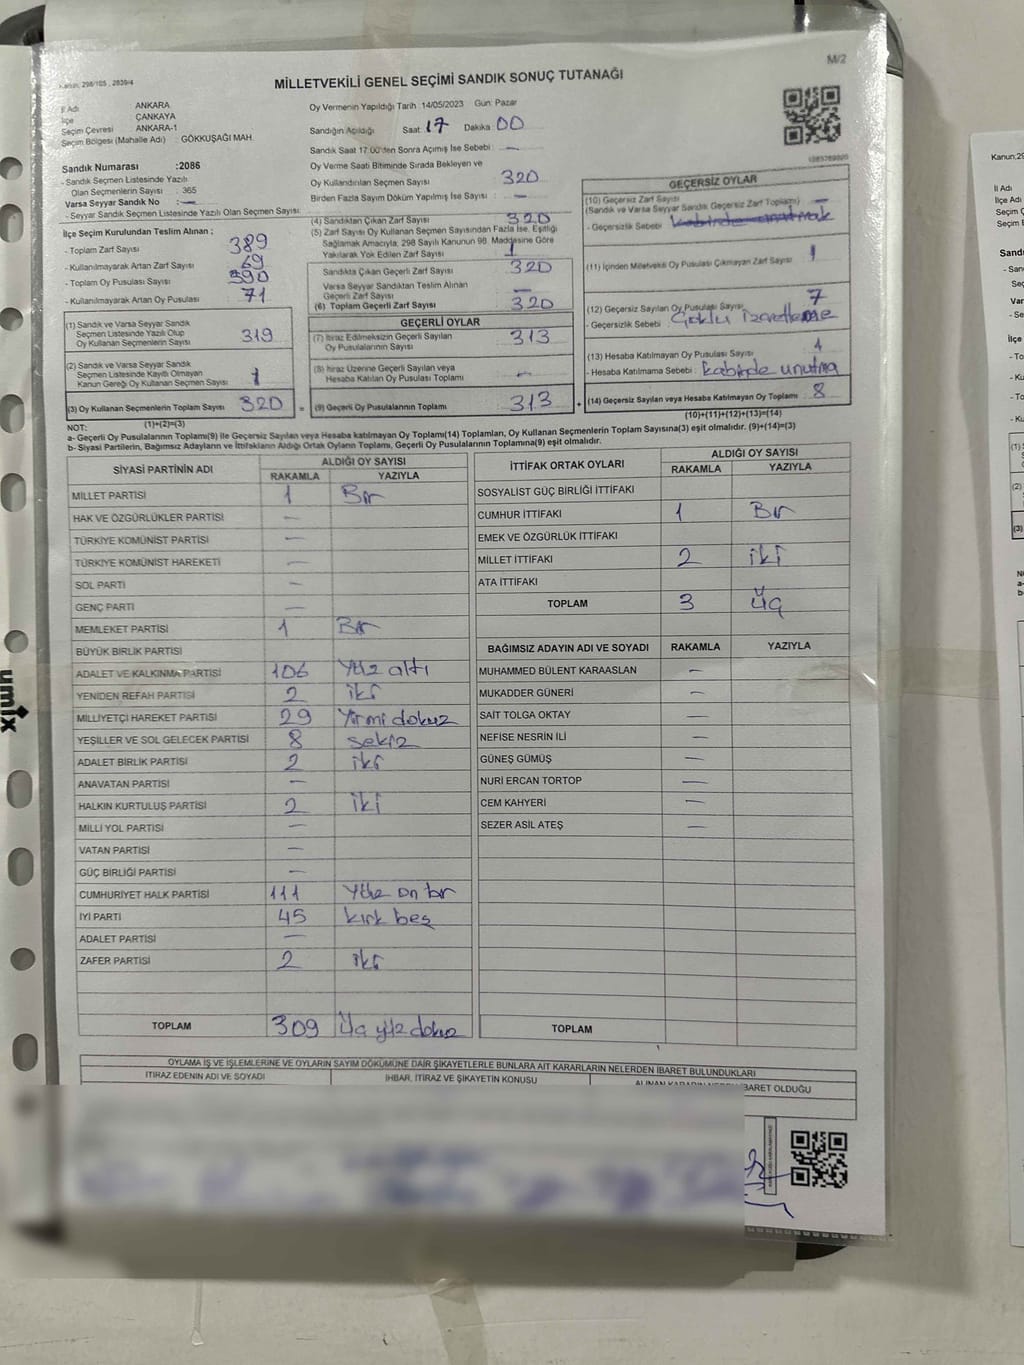 M/2
Kanun: 298/105 , 2839/4
MİLLETVEKİLİ GENEL SEÇİMİ SANDIK SONUÇ TUTANAĞI
İl Adı ANKARA
İlçe ÇANKAYA
Seçim Çevresi ANKARA-1
Seçim Bölgesi (Mahalle Adı) : GÖKKUŞAĞI MAH.
Sandık Numarası :2086
- Sandık Seçmen Listesinde Yazılı
Olan Seçmenlerin Sayısı : 365
Varsa Seyyar Sandık No : —
- Seyyar Sandık Seçmen Listesinde Yazılı Olan Seçmen Sayısı:
İlçe Seçim Kurulundan Teslim Alınan ;
- Toplam Zarf Sayısı 389
- Kullanılmayarak Artan Zarf Sayısı 69
- Toplam Oy Pusulası Sayısı 390
- Kullanılmayarak Artan Oy Pusulası 71
(1) Sandık ve Varsa Seyyar Sandık
Seçmen Listesinde Yazılı Olup
Oy Kullanan Seçmenlerin Sayısı 319
(2) Sandık ve Varsa Seyyar Sandık
Seçmen Listesinde Kayıtlı Olmayan
Kanun Gereği Oy Kullanan Seçmen Sayısı 1
(3) Oy Kullanan Seçmenlerin Toplam Sayısı 320
(1)+(2)=(3)
Oy Vermenin Yapıldığı Tarih 14/05/2023 Gün: Pazar
Sandığın Açıldığı Saat 17 Dakika 00
Sandık Saat 17.00'den Sonra Açılmış İse Sebebi : —
Oy Verme Saati Bitiminde Sırada Bekleyen ve
Oy Kullandırılan Seçmen Sayısı 320
Birden Fazla Sayım Döküm Yapılmış İse Sayısı : —
(4) Sandıktan Çıkan Zarf Sayısı 320
(5) Zarf Sayısı Oy Kullanan Seçmen Sayısından Fazla İse, Eşitliği
Sağlamak Amacıyla, 298 Sayılı Kanunun 98. Maddesine Göre
Yakılarak Yok Edilen Zarf Sayısı 1
Sandıkta Çıkan Geçerli Zarf Sayısı 320
Varsa Seyyar Sandıktan Teslim Alınan
Geçerli Zarf Sayısı —
(6) Toplam Geçerli Zarf Sayısı 320
GEÇERLİ OYLAR
(7) İtiraz Edilmeksizin Geçerli Sayılan
Oy Pusulalarının Sayısı 313
(8) İtiraz Üzerine Geçerli Sayılan veya
Hesaba Katılan Oy Pusulası Toplamı —
= (9) Geçerli Oy Pusulalarının Toplamı 313 +
GEÇERSİZ OYLAR
(10) Geçersiz Zarf Sayısı
(Sandık ve Varsa Seyyar Sandık Geçersiz Zarf Toplamı) —
- Geçersizlik Sebebi :
(11) İçinden Milletvekili Oy Pusulası Çıkmayan Zarf Sayısı 1
(12) Geçersiz Sayılan Oy Pusulası Sayısı 7
- Geçersizlik Sebebi : Çoklu İşaretleme
(13) Hesaba Katılmayan Oy Pusulası Sayısı 1
- Hesaba Katılmama Sebebi : Kabinde unutma
(14) Geçersiz Sayılan veya Hesaba Katılmayan Oy Toplamı 8
(10)+(11)+(12)+(13)=(14)
NOT:
a- Geçerli Oy Pusulalarının Toplamı(9) ile Geçersiz Sayılan veya Hesaba katılmayan Oy Toplamı(14) Toplamları, Oy Kullanan Seçmenlerin Toplam Sayısına(3) eşit olmalıdır. (9)+(14)=(3)
b- Siyasi Partilerin, Bağımsız Adayların ve İttifakların Aldığı Ortak Oyların Toplamı, Geçerli Oy Pusulalarının Toplamına(9) eşit olmalıdır.
SİYASİ PARTİNİN ADI ALDIĞI OY SAYISI
RAKAMLA YAZIYLA
MİLLET PARTİSİ 1 Bir
HAK VE ÖZGÜRLÜKLER PARTİSİ —
TÜRKİYE KOMÜNİST PARTİSİ —
TÜRKİYE KOMÜNİST HAREKETİ —
SOL PARTİ —
GENÇ PARTİ —
MEMLEKET PARTİSİ 1 Bir
BÜYÜK BİRLİK PARTİSİ
ADALET VE KALKINMA PARTİSİ 106 Yüz altı
YENİDEN REFAH PARTİSİ 2 iki
MİLLİYETÇİ HAREKET PARTİSİ 29 Yirmi dokuz
YEŞİLLER VE SOL GELECEK PARTİSİ 8 sekiz
ADALET BİRLİK PARTİSİ 2 iki
ANAVATAN PARTİSİ —
HALKIN KURTULUŞ PARTİSİ 2 iki
MİLLİ YOL PARTİSİ —
VATAN PARTİSİ —
GÜÇ BİRLİĞİ PARTİSİ —
CUMHURİYET HALK PARTİSİ 111 Yüz on bir
İYİ PARTİ 45 kırk beş
ADALET PARTİSİ —
ZAFER PARTİSİ 2 iki
TOPLAM 309 Üç yüz dokuz
İTTİFAK ORTAK OYLARI ALDIĞI OY SAYISI
RAKAMLA YAZIYLA
SOSYALİST GÜÇ BİRLİĞİ İTTİFAKI
CUMHUR İTTİFAKI 1 Bir
EMEK VE ÖZGÜRLÜK İTTİFAKI
MİLLET İTTİFAKI 2 iki
ATA İTTİFAKI
TOPLAM 3 Üç
BAĞIMSIZ ADAYIN ADI VE SOYADI RAKAMLA YAZIYLA
MUHAMMED BÜLENT KARAASLAN —
MUKADDER GÜNERİ —
SAİT TOLGA OKTAY —
NEFİSE NESRİN İLİ —
GÜNEŞ GÜMÜŞ —
NURİ ERCAN TORTOP —
CEM KAHYERİ —
SEZER ASİL ATEŞ —
TOPLAM
OYLAMA İŞ VE İŞLEMLERİNE VE OYLARIN SAYIM DÖKÜMÜNE DAİR ŞİKAYETLERLE BUNLARA AİT KARARLARIN NELERDEN İBARET BULUNDUKLARI
İTİRAZ EDENİN ADI VE SOYADI İHBAR, İTİRAZ VE ŞİKAYETİN KONUSU ALINAN KARARIN NEDEN İBARET OLDUĞU
umix
Kanun,29
İl Adı
İlçe Adı
Seçim
Sandı